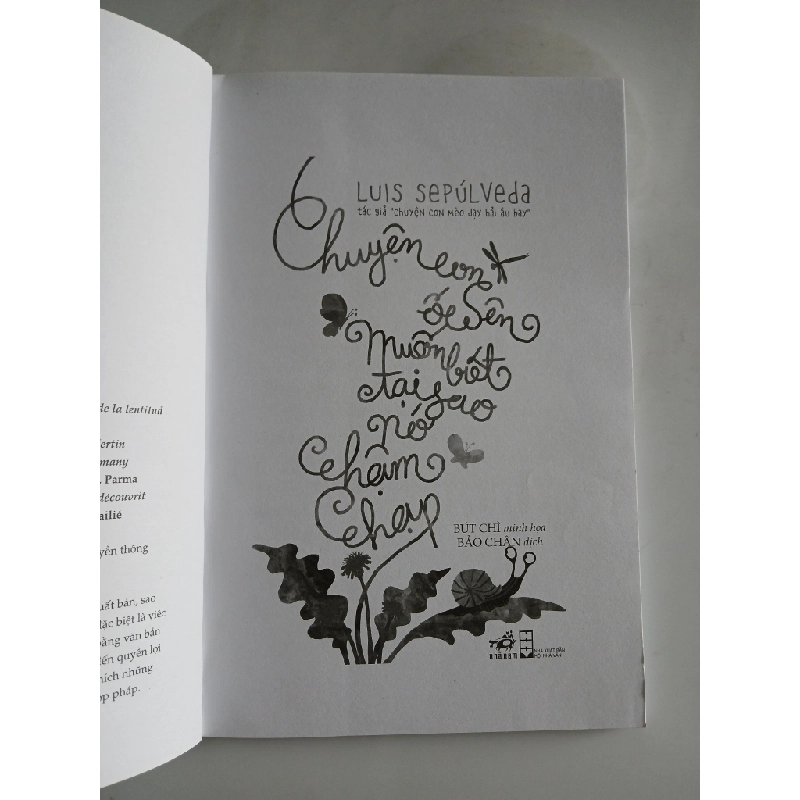 de la lentitud
ertin
many
. Parma
découvrit
ailié
yền thông
uất bản, sao
đặc biệt là việc
bằng văn bản
đến quyền lợi
hích những
ợp pháp.
LUIS SEPÚLVEDA
tác giả "Chuyện con mèo dạy hải âu bay"
Chuyện con
ốc sên
muốn biết
tại sao
nó
chậm
chạp
BÚT CHÌ minh họa
BẢO CHÂN dịch
nhã nam